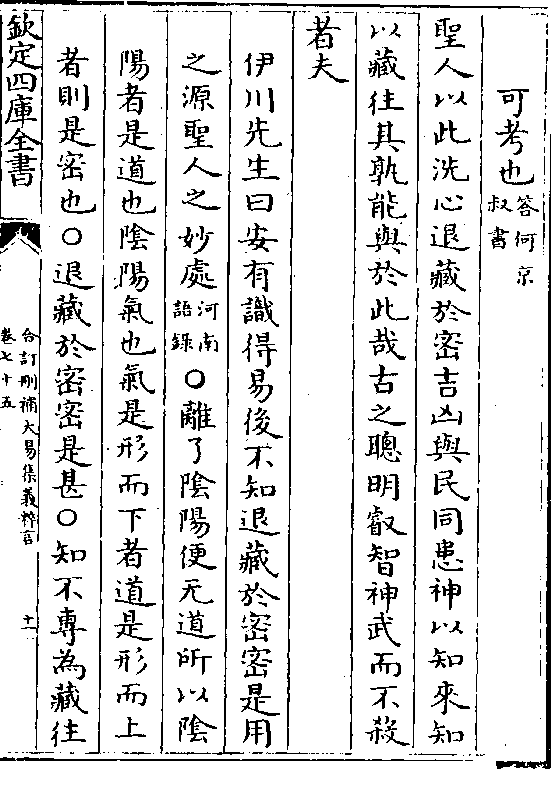 可考也答何京叔書
聖人以此洗心退藏於密吉凶與民同患神以知來知
以藏往其孰能與於此哉古之聰明叡智神武而不殺
者夫
伊川先生曰安有識得易後不知退藏於密密是用
之源聖人之妙處河南語錄○離了陰陽便无道所以陰
陽者是道也陰陽氣也氣是形而下者道是形而上
者則是密也○退藏於密密是甚○知不專為藏往
欽定四庫全書
合訂刪補大易集義粹言
卷七十五
十一